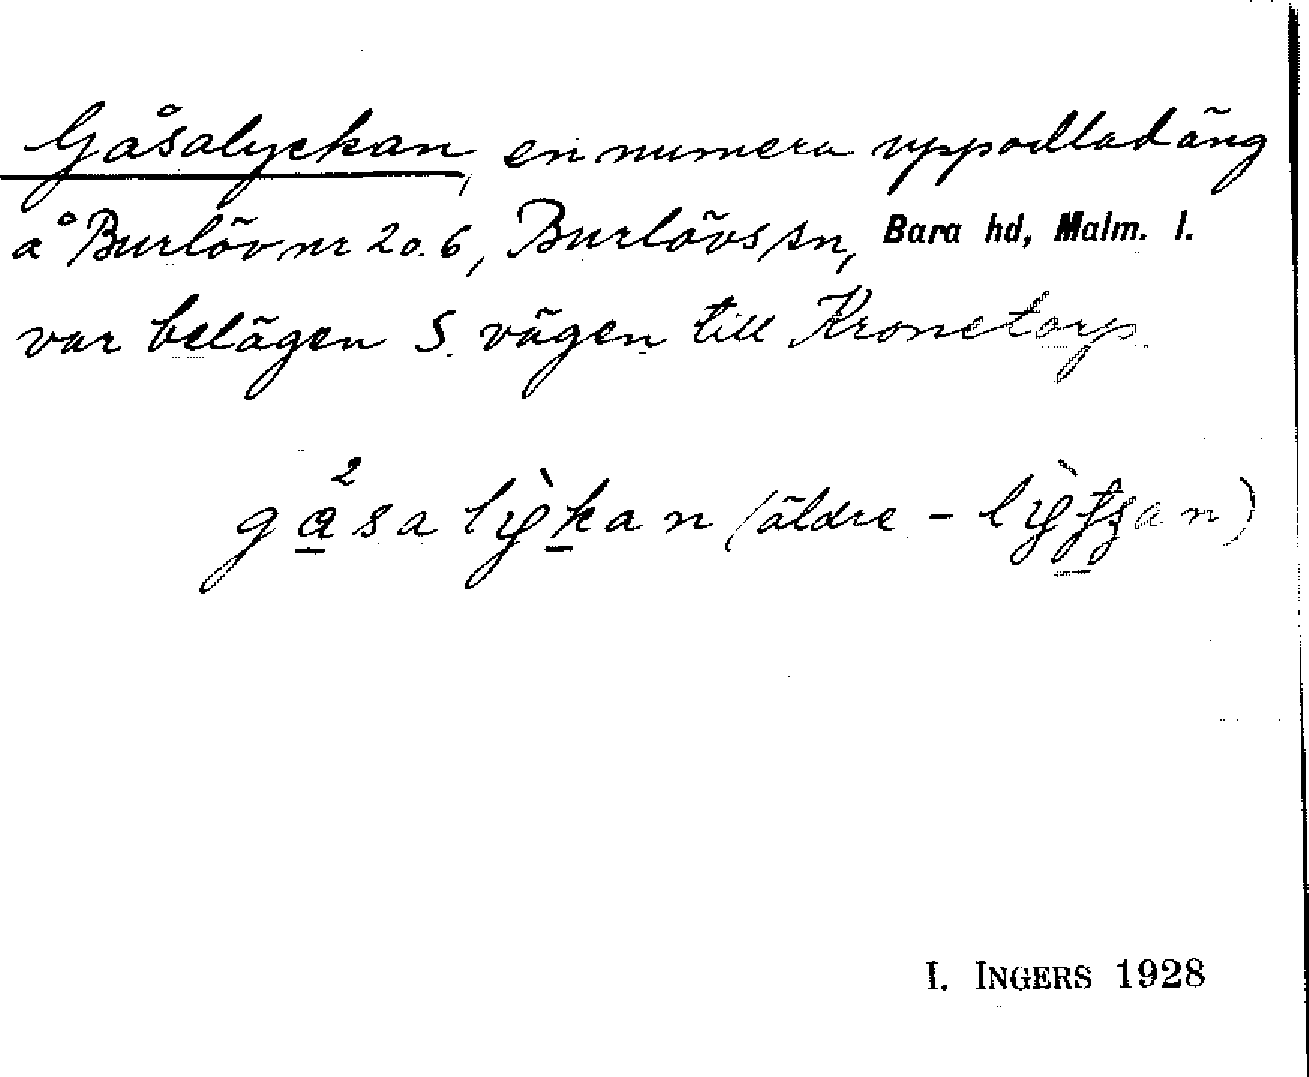 Gåsalyckan, en numera uppodlad äng
å Burlöv nr 2 o. 6, Burlövs sn, Bara hd, Malm. l.
var belägen S. vägen till Kronetorp.
gåsalỳkan (äldre -lỳtʃan)
I. INGERS 1928